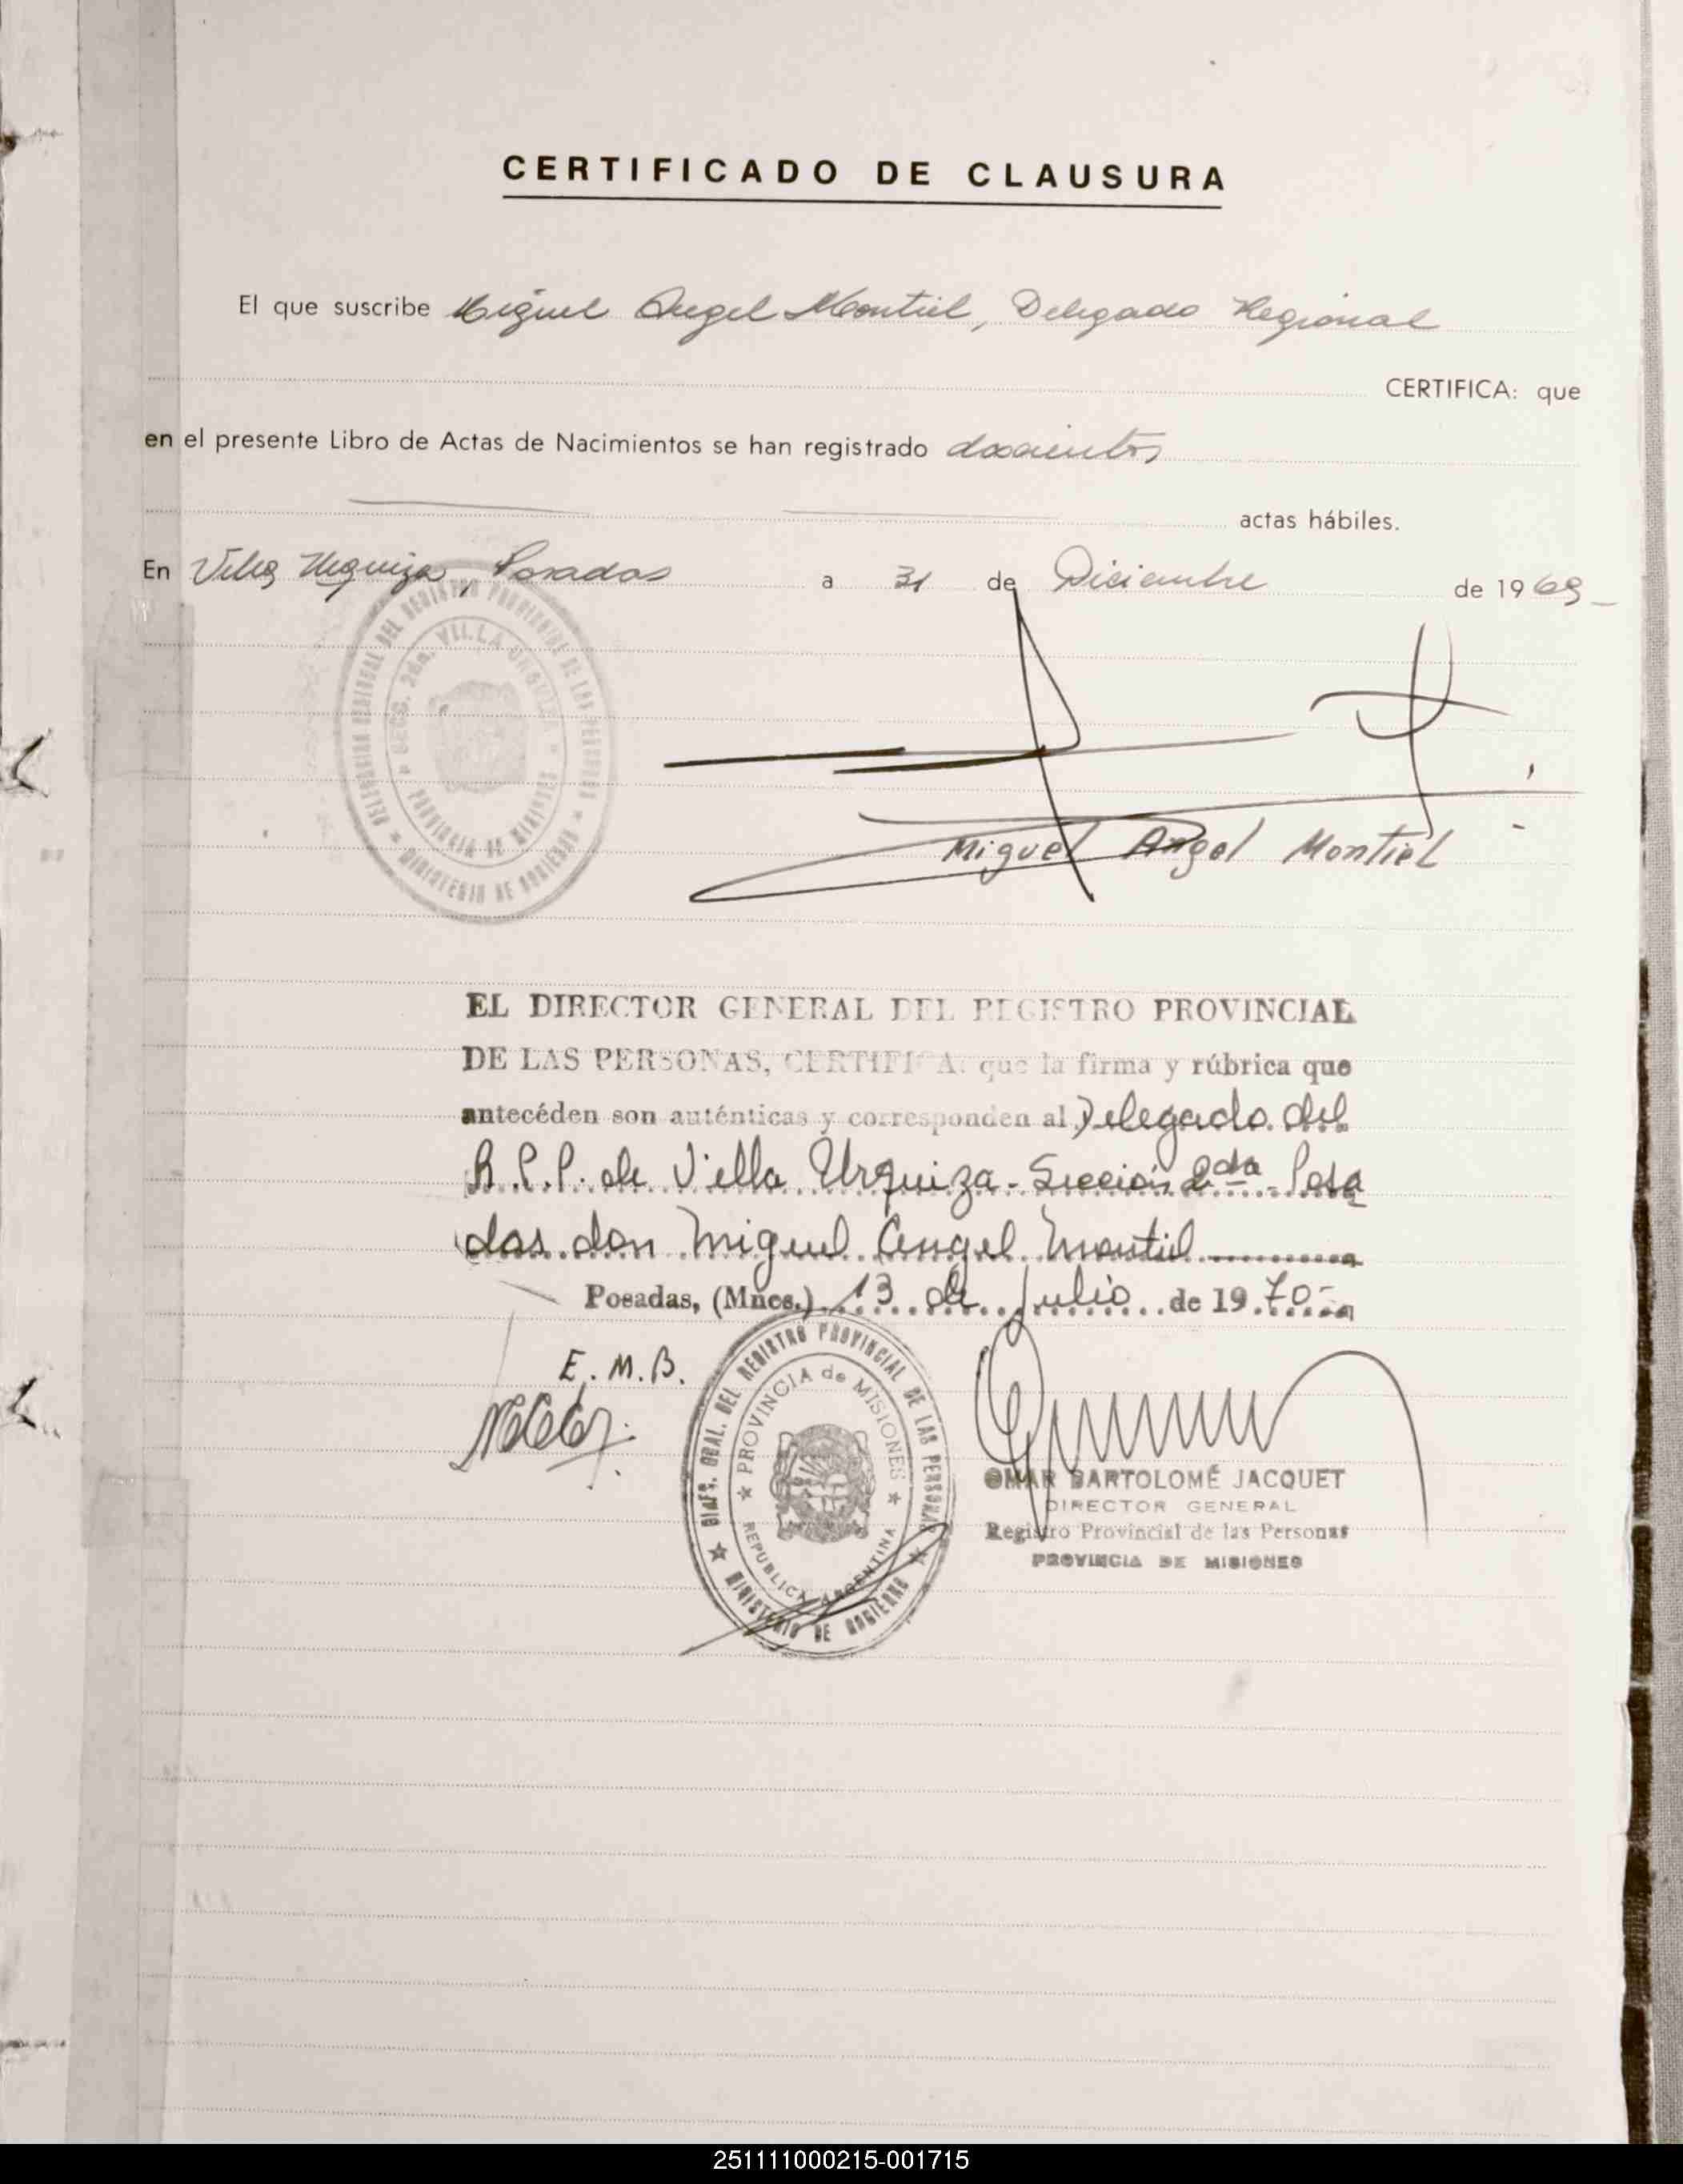 CERTIFICADO DE CLAUSURA
El que suscribe Miguel Angel Montiel, Delegado Regional
CERTIFICA: que
en el presente Libro de Actas de Nacimientos se han registrado doscientos
actas hábiles.
En Villa Urquiza, Posadas a 31 de Diciembre de 1969
DELEGACION REGIONAL DEL REGISTRO PROVINCIAL DE LAS PERSONAS
SECC. 2da. VILLA URQUIZA
PROVINCIA DE MISIONES
MINISTERIO DE GOBIERNO
Miguel Angel Montiel
EL DIRECTOR GENERAL DEL REGISTRO PROVINCIAL
DE LAS PERSONAS, CERTIFICA: que la firma y rúbrica que
antecéden son auténticas y corresponden al Delegado del
R.P.P. de Villa Urquiza - Sección 2da - Posa
das don Miguel Angel Montiel
Posadas, (Mnes.) 13 de Julio de 1970-
E. M. B.
DIREC. GRAL. DEL REGISTRO PROVINCIAL DE LAS PERSONAS
PROVINCIA de MISIONES
REPUBLICA ARGENTINA
MINISTERIO DE GOBIERNO
OMAR BARTOLOMÉ JACQUET
DIRECTOR GENERAL
Registro Provincial de las Personas
PROVINCIA DE MISIONES
251111000215-001715